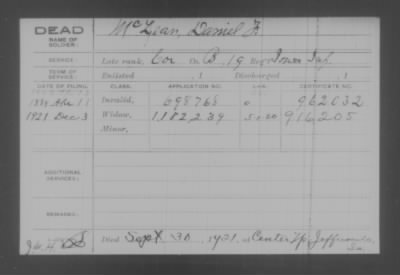 DEAD
NAME OF SOLDIER: McLean, Daniel F
SERVICE: Late rank, Cor Co. B, 19 Reg't Iowa Inf.
TERM OF SERVICE: Enlisted , 1 Discharged , 1
DATE OF FILING. CLASS. APPLICATION NO. LAW. CERTIFICATE NO.
Invalid, 698768 962032
1921 Dec 3 Widow, 1182,239 916205
Minor,
ADDITIONAL SERVICES:
REMARKS:
Died Sept 30, 1921, at Center Tp. Jefferson Co.
Ia.